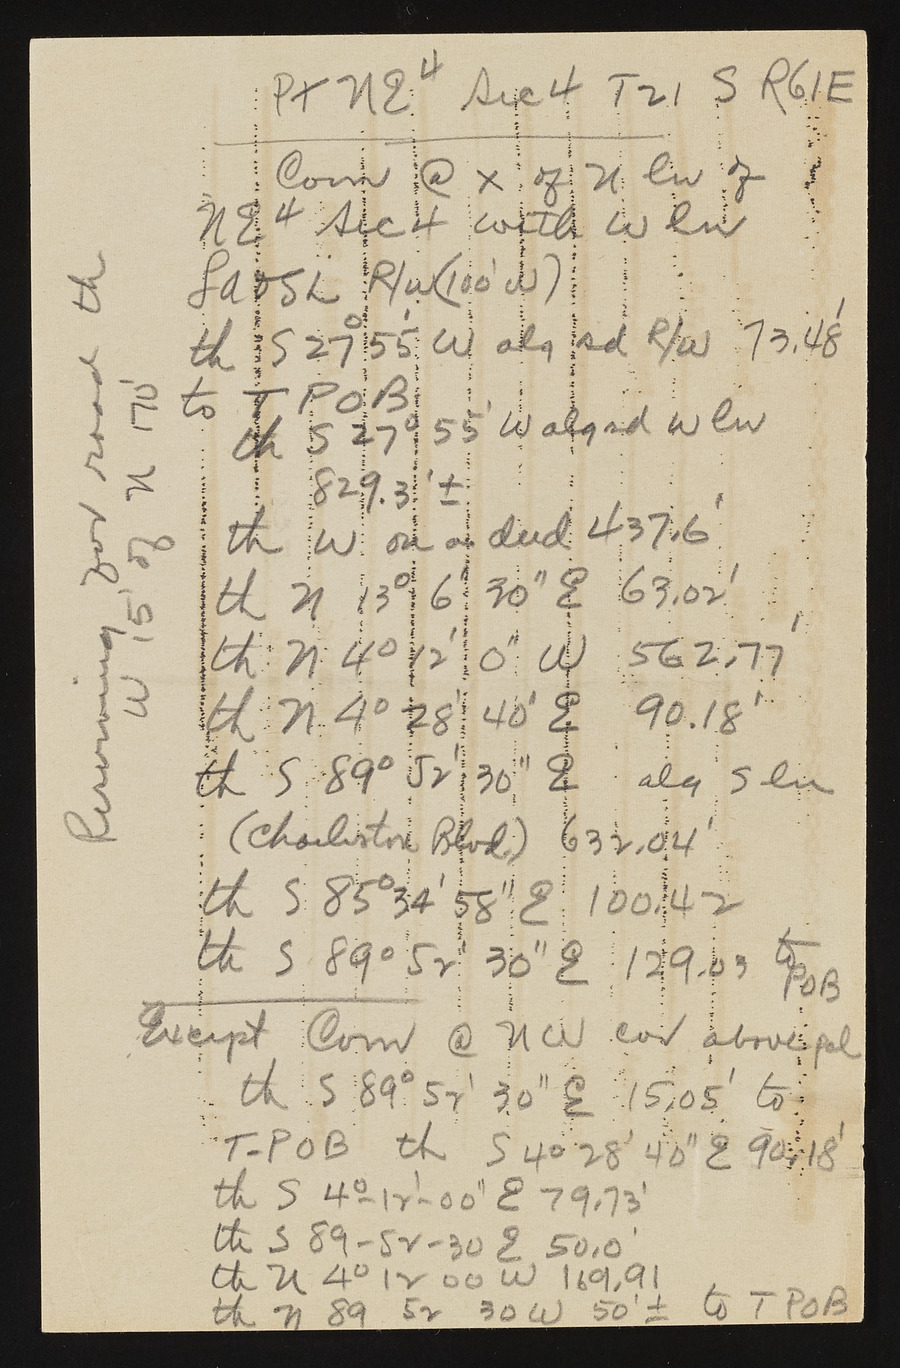 Pt NE4 Sec 4 T21 S R61E
Com @ x of N ln of
NE4 Sec 4 with W ln
LA&SL R/W (100' W)
th S 27° 55' W alg sd R/W 73.48'
to T POB
th S 27° 55' W alg sd W ln
829.3' ±
th W on a deed 437.6'
th N 13° 6' 30" E 63.02'
th N 4° 12' 0" W 562.77'
th N 4° 28' 40" E 90.18'
th S 89° 52' 30" E alg S ln
(Charleston Blvd) 632.04'
th S 85° 34' 58" E 100.42
th S 89° 52' 30" E 129.03 to
POB
Except Com @ NW cor above pcl
th S 89° 52' 30" E 15.05' to
T-POB th S 4° 28' 40" E 90.18'
th S 4°-12'-00" E 79.73'
th S 89-52-30 E 50.0'
th N 4° 12 00 W 169.91
th N 89 52 30 W 50' ± to T POB
Reserving for road th
W 15' of N 170'